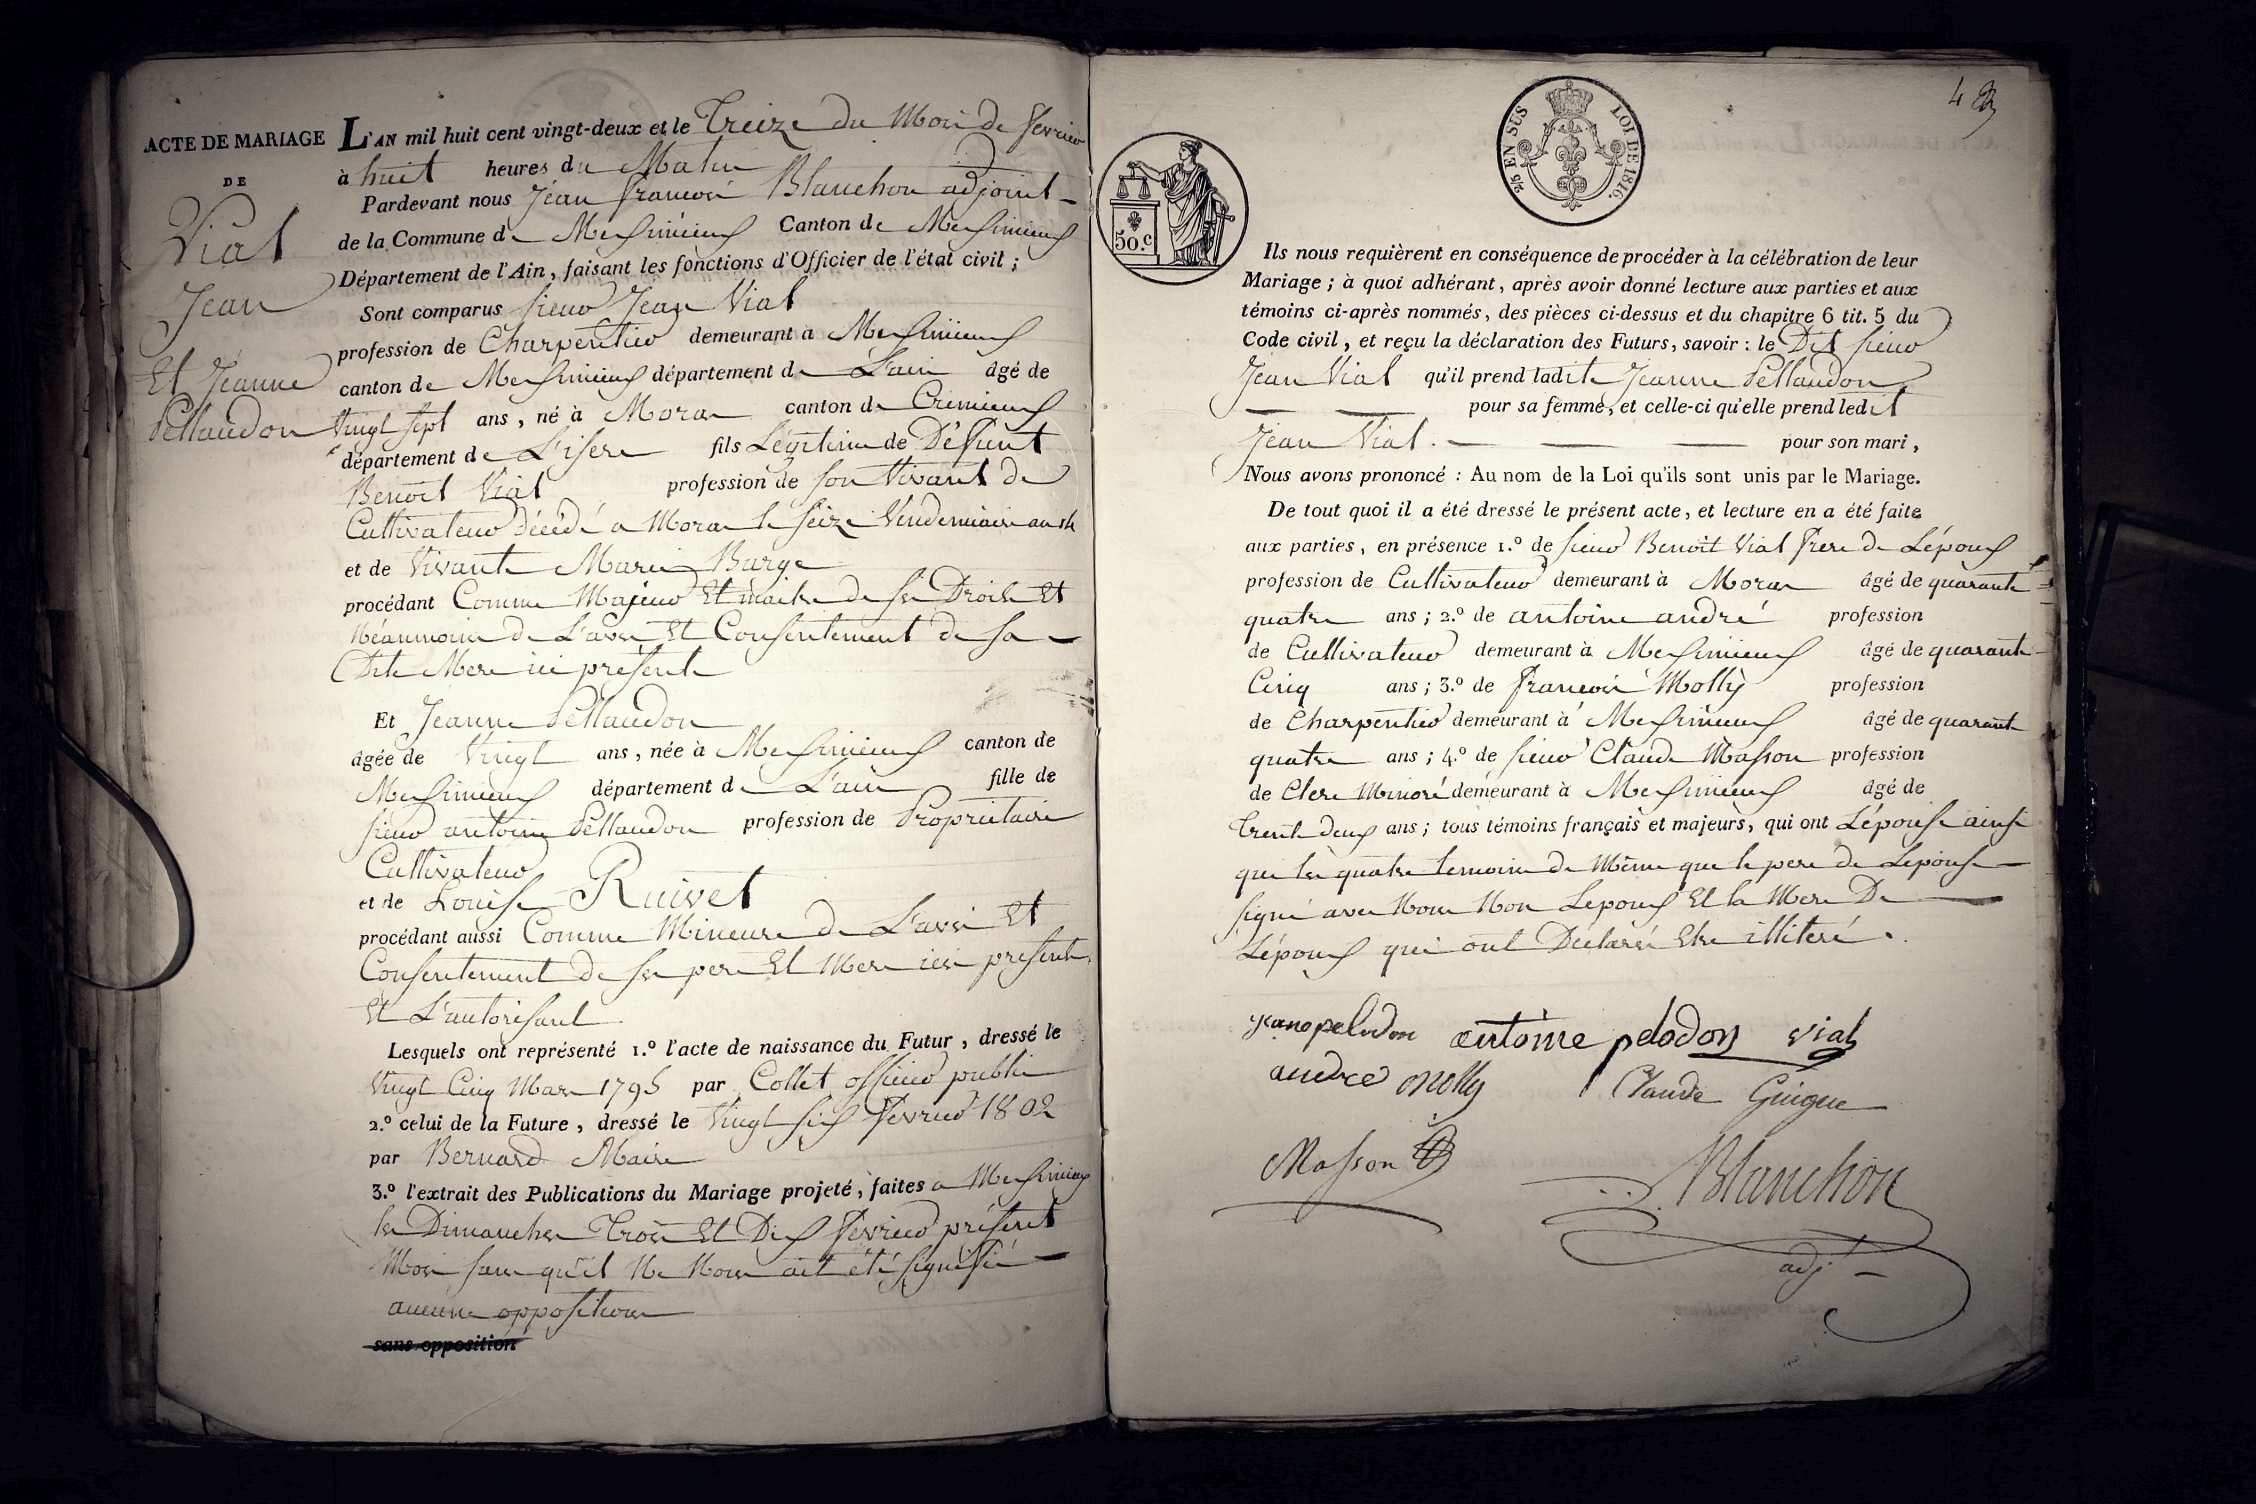 ACTE DE MARIAGE
DE
Vial
Jean
Et Jeanne
Pellaudon
L'AN mil huit cent vingt-deux et le Treize du Mois de fevrier
à huit heures du Matin
Pardevant nous Jean françois Blanchon adjoint
de la Commune de Messimieux Canton de Messimieux
Département de l'Ain, faisant les fonctions d'Officier de l'état civil ;
Sont comparus sieur Jean Vial
profession de Charpentier demeurant à Messimieux
canton de Messimieux département de L'ain âgé de
Vingt sept ans, né à Moras canton de Cremieux
département de L'isere fils Légitime de Défunt
Benoit Vial profession de son Vivant de
Cultivateur décédé a Moras le seize Vendemiaire an 14
et de Vivante Marie Barge
procédant Comme Majeur Et maitre de ses Droits Et
Néanmoins de L'avis Et Consentement de sa
Dite Mere ici présente
Et Jeanne Pellaudon
âgée de Vingt ans, née à Messimieux canton de
Messimieux département de L'ain fille de
sieur antoine Pellaudon profession de Propriétaire
Cultivateur
et de Louise Ruivet
procédant aussi Comme Mineure de L'avis Et
Consentement de ses pere Et Mere ici présents
Et L'autorisant
Lesquels ont représenté 1.º l'acte de naissance du Futur, dressé le
Vingt Cinq Mars 1795 par Collet officier public
2.º celui de la Future, dressé le Vingt six fevrier 1802
par Bernard Maire
3.º l'extrait des Publications du Mariage projeté, faites a Messimieux
les Dimanches Trois Et Dix fevrier présent
Mois sans qu'il Ne Nous ait été signifié
aucune opposition
sans opposition
50.c
2/5 EN SUS LOI DE 1816.
4
Ils nous requièrent en conséquence de procéder à la célébration de leur
Mariage ; à quoi adhérant, après avoir donné lecture aux parties et aux
témoins ci-après nommés, des pièces ci-dessus et du chapitre 6 tit. 5 du
Code civil, et reçu la déclaration des Futurs, savoir : le Dit sieur
Jean Vial qu'il prend ladite Jeanne Pellaudon
pour sa femme, et celle-ci qu'elle prend ledit
Jean Vial. pour son mari,
Nous avons prononcé : Au nom de la Loi qu'ils sont unis par le Mariage.
De tout quoi il a été dressé le présent acte, et lecture en a été faite
aux parties, en présence 1.º de sieur Benoit Vial frere de L'époux
profession de Cultivateur demeurant à Moras âgé de quarante
quatre ans ; 2.º de antoine andré profession
de Cultivateur demeurant à Messimieux âgé de quarante
Cinq ans ; 3.º de françois Molly profession
de Charpentier demeurant à Messimieux âgé de quarante
quatre ans ; 4.º de sieur Claude Masson profession
de Clerc Minoré demeurant à Messimieux âgé de
Trente deux ans ; tous témoins français et majeurs, qui ont L'épouse ainsi
que les quatre temoins de Même que le pere de Lepouse
signé avec Nous Non Lepoux Et la Mere De
L'époux qui ont Déclaré Etre illiteré.
antoine pelodon vial
andre molly Claude Guigue
Masson
Blanchon
adj.t